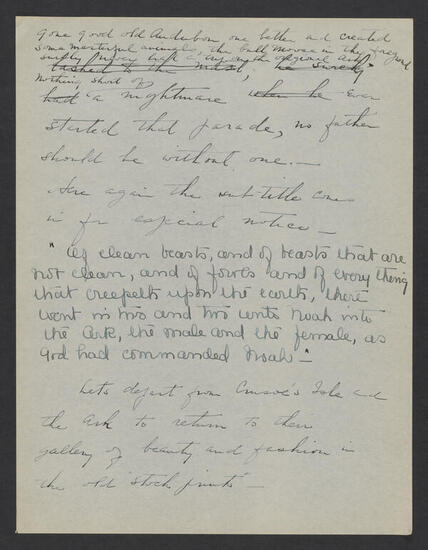 gone good old Audubon one better and created
some masterful animals, the bull moose in the foreground
surely never had a in the original Ark
lashed to the mast, he surely
nothing short of
had a nightmare when he ever
started that parade, no father
should be without one.—
Here again the sub-title comes
in for especial notice—
"Of clean beasts, and of beasts that are
not clean, and of fowls and of every thing
that creepeth upon the earth, there
went in two and two unto Noah into
the Ark, the male and the female, as
God had commanded Noah"—
Lets depart from Crusoe's Isle and
the Ark to return to their
gallery of beauty and fashion in
the old "stock prints"—